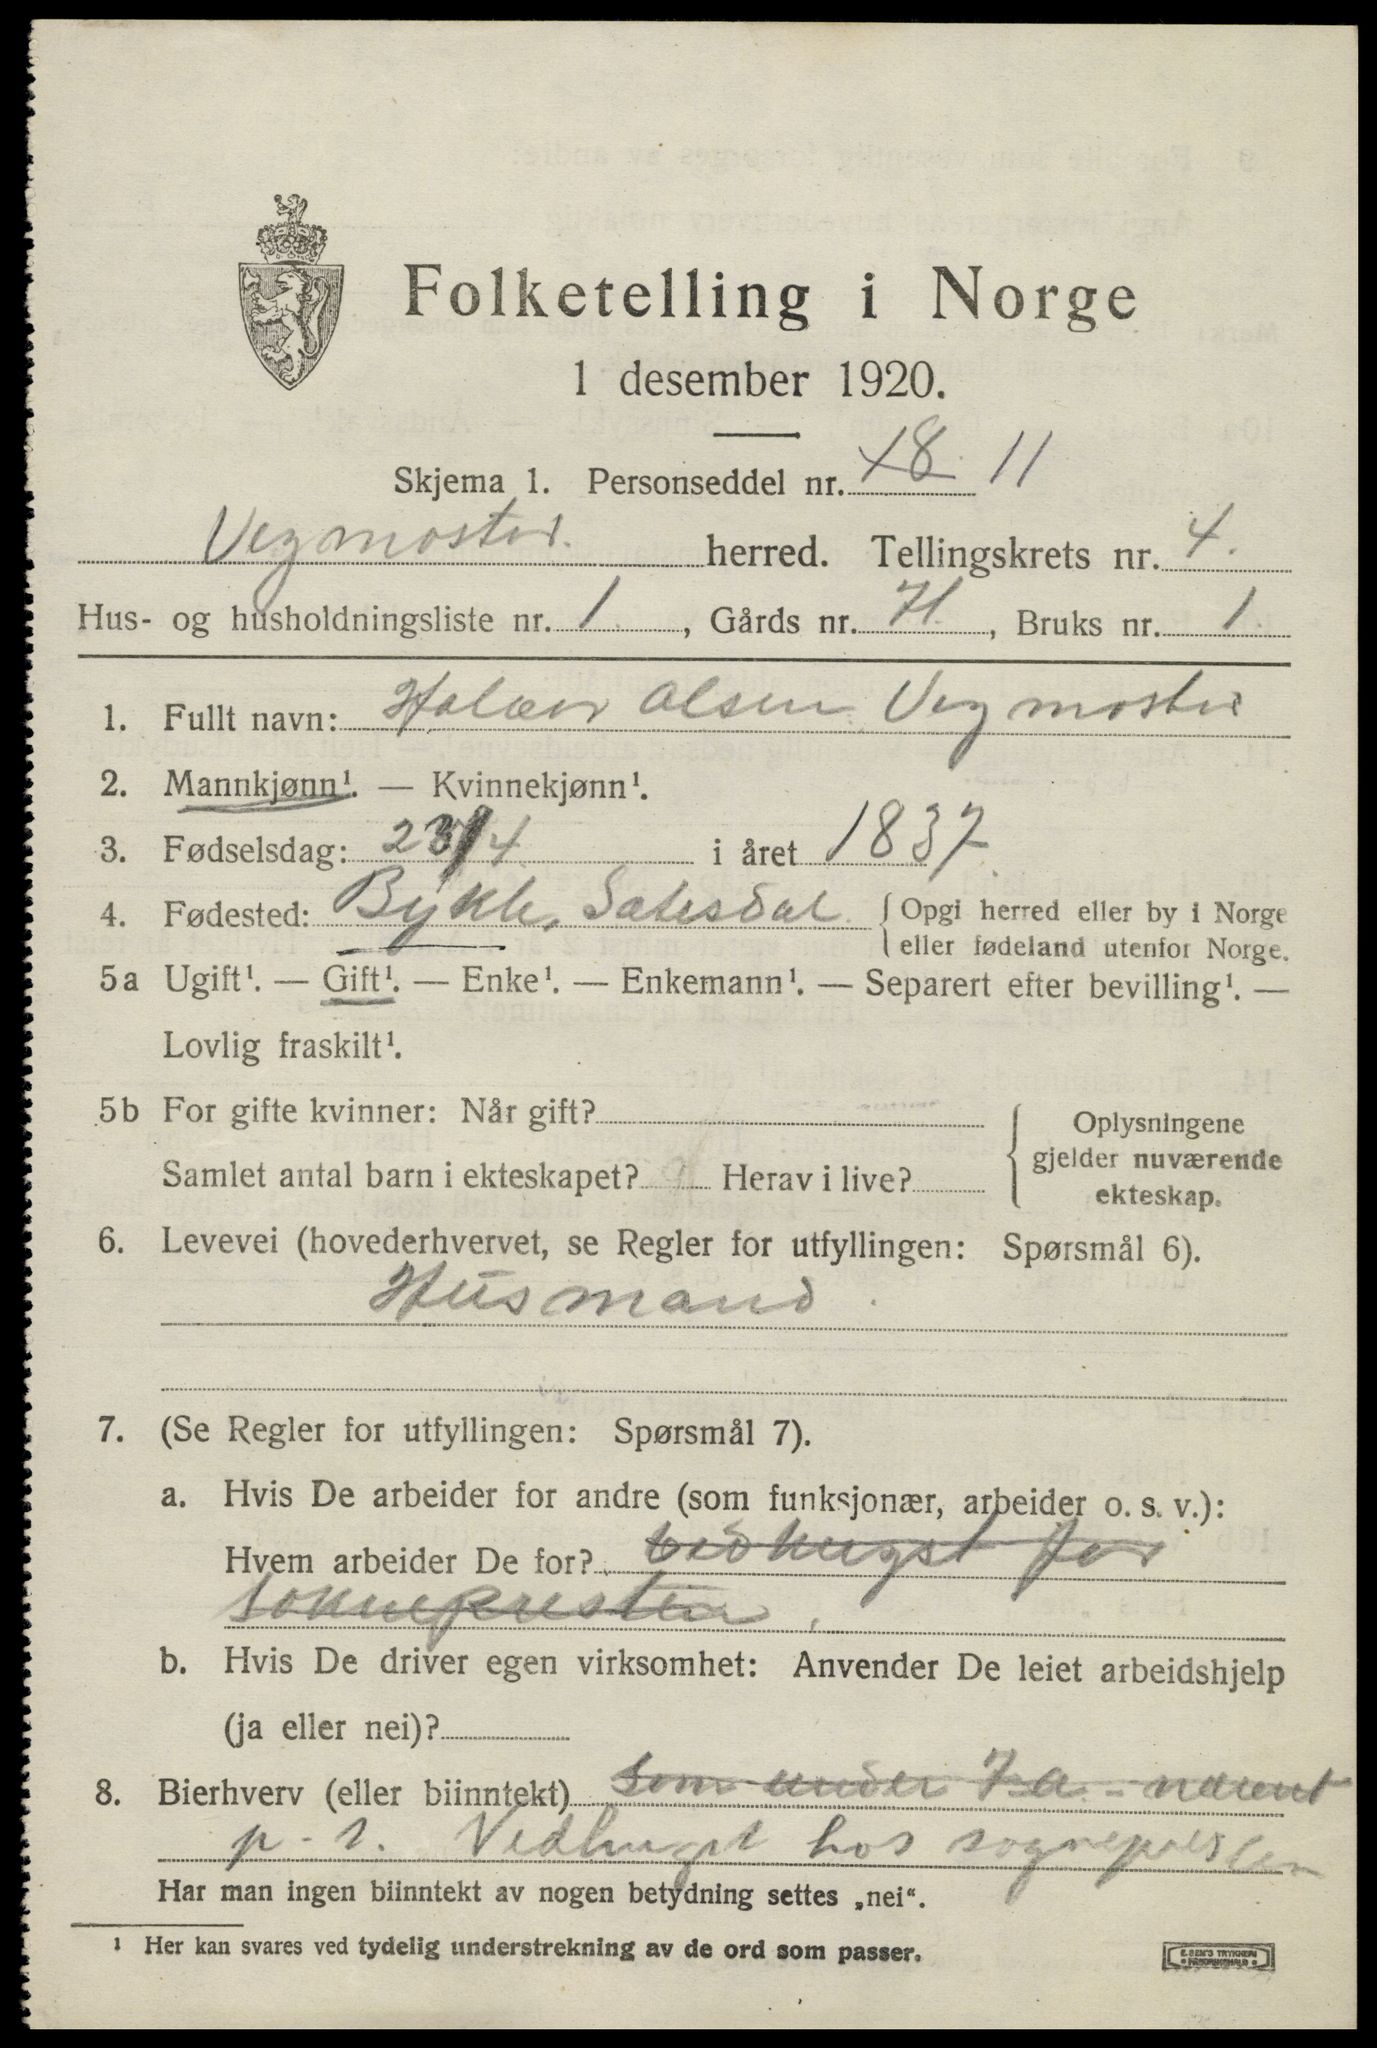 Folketelling i Norge
1 desember 1920.
Skjema 1. Personseddel nr. 18 11
Vegmoster herred. Tellingskrets nr. 4.
Hus- og husholdningsliste nr. 1, Gårds nr. 71, Bruks nr. 1.
1. Fullt navn: Halvor Olsen Vegmoster
2. Mannkjønn¹. — Kvinnekjønn¹.
3. Fødselsdag: 23/4 i året 1837
4. Fødested: Bykle, Setesdal { Opgi herred eller by i Norge
eller fødeland utenfor Norge.
5a Ugift¹. — Gift¹. — Enke¹. — Enkemann¹. — Separert efter bevilling¹. —
Lovlig fraskilt¹.
5b For gifte kvinner: Når gift?
Samlet antal barn i ekteskapet? Herav i live?
Oplysningene
gjelder nuværende
ekteskap.
6. Levevei (hovederhvervet, se Regler for utfyllingen: Spørsmål 6).
Husmand.
7. (Se Regler for utfyllingen: Spørsmål 7).
a. Hvis De arbeider for andre (som funksjonær, arbeider o. s. v.):
Hvem arbeider De for? vedhugst for
soknepresten,
b. Hvis De driver egen virksomhet: Anvender De leiet arbeidshjelp
(ja eller nei)?
8. Bierhverv (eller biinntekt) Som under 7 a - nævnt
Vedhugst hos sognepresten
Har man ingen biinntekt av nogen betydning settes „nei“.
¹ Her kan svares ved tydelig understrekning av de ord som passer.